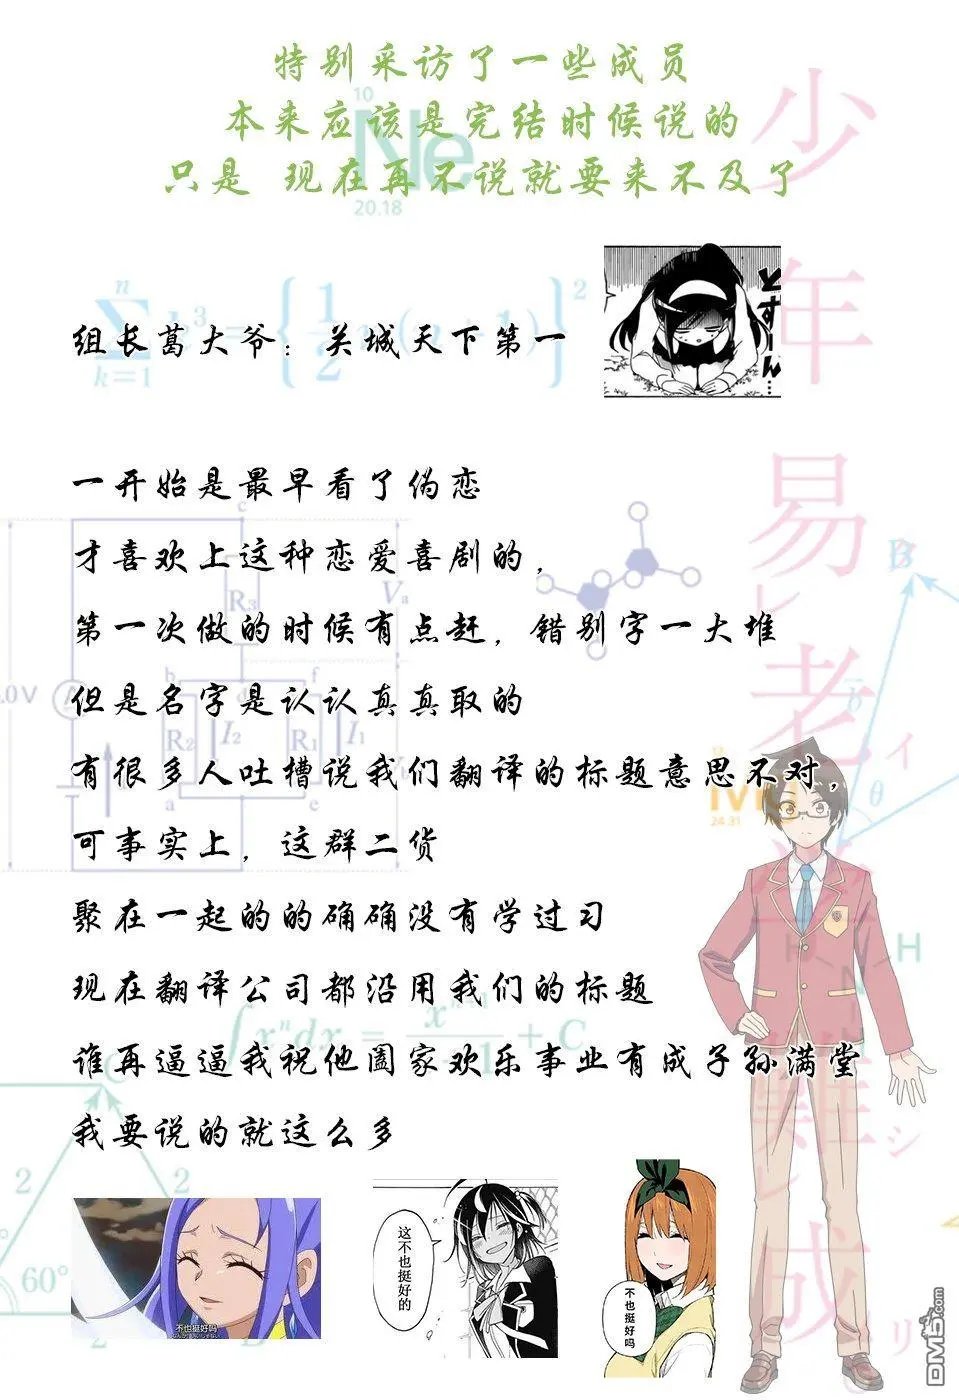 特别采访了一些成员
本来应该是完结时候说的
只是 现在再不说就要来不及了
10
Ne
20.18
少年易老イレ学難シ成リ
どすーん…
組长葛大爷：关城天下第一
n
Σ k³ = { 1/2 n(n+1) }²
k=1
一开始是最早看了伪恋
才喜欢上这种恋爱喜剧的，
第一次做的时候有点赶，错别字一大堆
但是名字是认认真真取的
有很多人吐槽说我们翻译的标题意思不对，
可事实上，这群二货
聚在一起的的确确没有学过习
现在翻译公司都沿用我们的标题
谁再逼逼我祝他阖家欢乐事业有成子孙满堂
我要说的就这么多
c
R₃
Vₐ
.0V
A
b
d
f
R₂
I₂
R₁
I₁
a
e
B
b
θ
24.31
H
N
∫xⁿdx =
+ C
C
2
2
60°
不也挺好吗
这不也挺好的
不也挺好吗
DM5